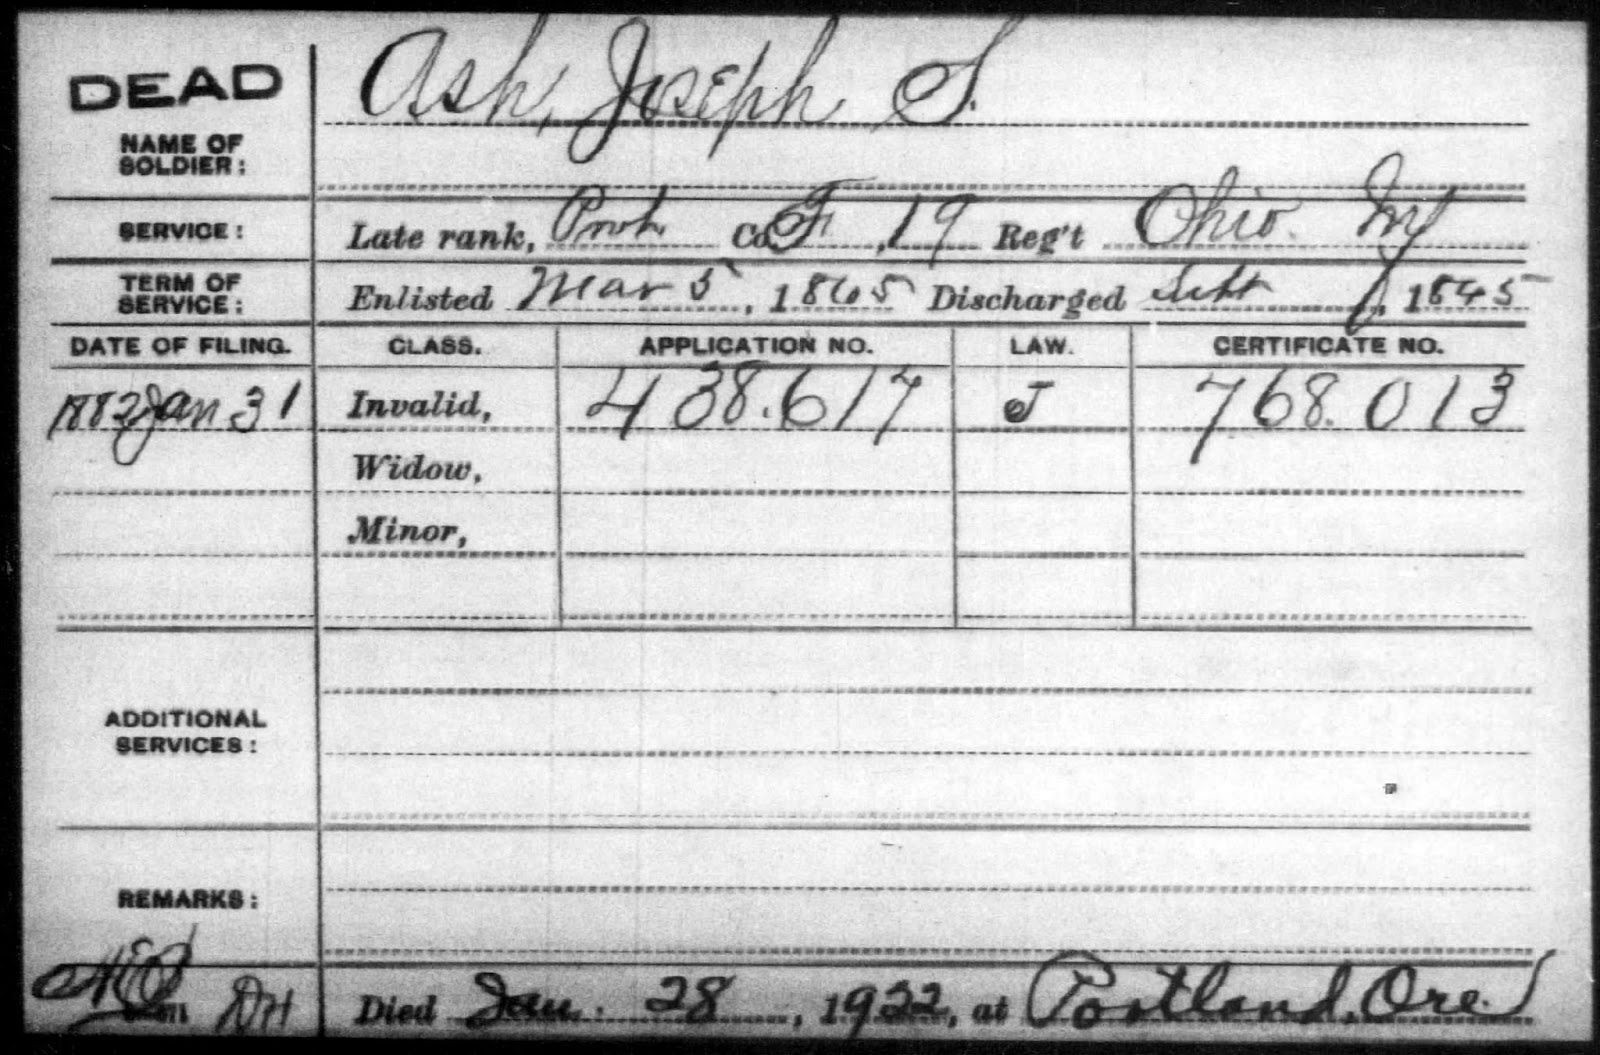 DEAD
Ash, Joseph S.
NAME OF
SOLDIER:
SERVICE: Late rank, Prvt. Co. F, 19 Reg't Ohio Inf
TERM OF
SERVICE: Enlisted Mar 5, 1865 Discharged Sept 1845
DATE OF FILING. CLASS. APPLICATION NO. LAW. CERTIFICATE NO.
1882 Jan 31 Invalid, 438.617 J 768.013
Widow,
Minor,
ADDITIONAL
SERVICES:
REMARKS:
DH Died Jan. 28, 1922, at Portland, Ore.